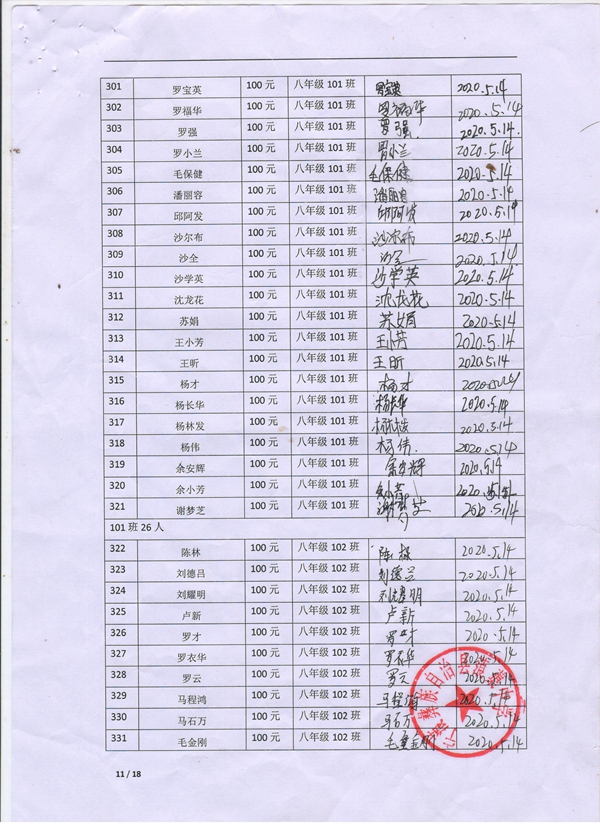 301 罗宝英 100元 八年级 101 班 罗宝英 2020.5.14
302 罗福华 100元 八年级 101 班 罗福华 2020.5.14
303 罗强 100元 八年级 101 班 罗强 2020.5.14
304 罗小兰 100元 八年级 101 班 罗小兰 2020.5.14
305 毛保健 100元 八年级 101 班 毛保健 2020.5.14
306 潘丽容 100元 八年级 101 班 潘丽容 2020.5.14
307 邱阿发 100元 八年级 101 班 邱阿发 2020.5.14
308 沙尔布 100元 八年级 101 班 沙尔布 2020.5.14
309 沙全 100元 八年级 101 班 沙全 2020.5.14
310 沙学英 100元 八年级 101 班 沙学英 2020.5.14
311 沈龙花 100元 八年级 101 班 沈龙花 2020.5.14
312 苏娟 100元 八年级 101 班 苏娟 2020.5.14
313 王小芳 100元 八年级 101 班 王小芳 2020.5.14
314 王昕 100元 八年级 101 班 王昕 2020.5.14
315 杨才 100元 八年级 101 班 杨才
316 杨长华 100元 八年级 101 班 杨长华 2020.5.14
317 杨林发 100元 八年级 101 班 2020.5.14
318 杨伟 100元 八年级 101 班 杨伟. 2020.5.14
319 余安辉 100元 八年级 101 班 余安辉 2020.5.14
320 余小芳 100元 八年级 101 班 余小芳
321 谢梦芝 100元 八年级 101 班 2020.5.14
101 班 26 人
322 陈林 100元 八年级 102 班 陈林 2020.5.14
323 刘德吕 100元 八年级 102 班 2020.5.14
324 刘耀明 100元 八年级 102 班 刘耀明 2020.5.14
325 卢新 100元 八年级 102 班 卢新 2020.5.14
326 罗才 100元 八年级 102 班 罗才 2020.5.14
327 罗衣华 100元 八年级 102 班 罗衣华 2020.5.14
328 罗云 100元 八年级 102 班 罗云 2020.5.14
329 马程鸿 100元 八年级 102 班 马程鸿 2020.5.14
330 马石万 100元 八年级 102 班 马石万 2020.5.14
331 毛金刚 100元 八年级 102 班 2020.5.14
彝族自治县
11 / 18